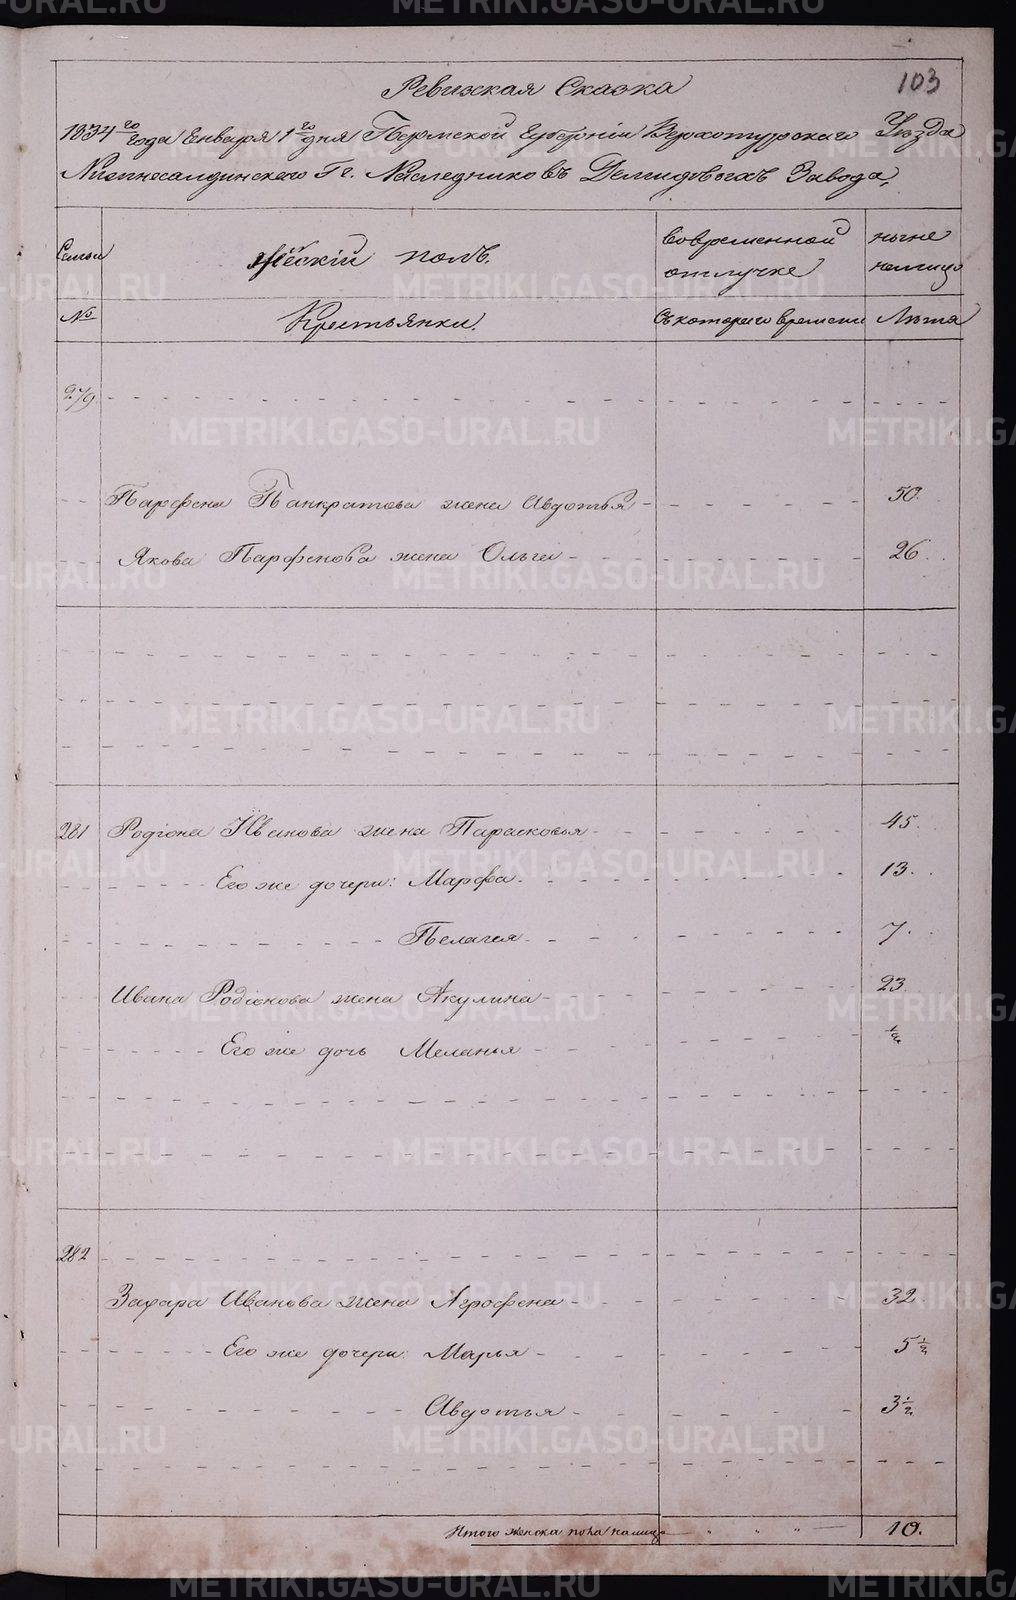 103
Ревизская Сказка
1834го года Генваря 1го дня Пермской Губернiи Верхотурского Уезда
Нижнесалдинского Гг. Наследниковъ Демидовыхъ Завода,
Семьи
Женскiй полъ.
Во временной отлучке
ныне налицо
№
Крестьянки.
Съ которого времени
Лета
279
Парфена Панкратова жена Авдотья 50.
Якова Парфенова жена Ольга 26.
281 Родiона Иванова жена Парасковья 45.
Его же дочери: Марфа 13.
Пелагея 7.
Ивана Родiонова жена Акулина 23.
Его же дочь Меланья 1/2
282
Захара Иванова жена Агрофена 32.
Его же дочери: Марья 5 1/2
Авдотья 3 1/2
Итого женска пола налицо " " " 10.
METRIKI.GASO-URAL.RU